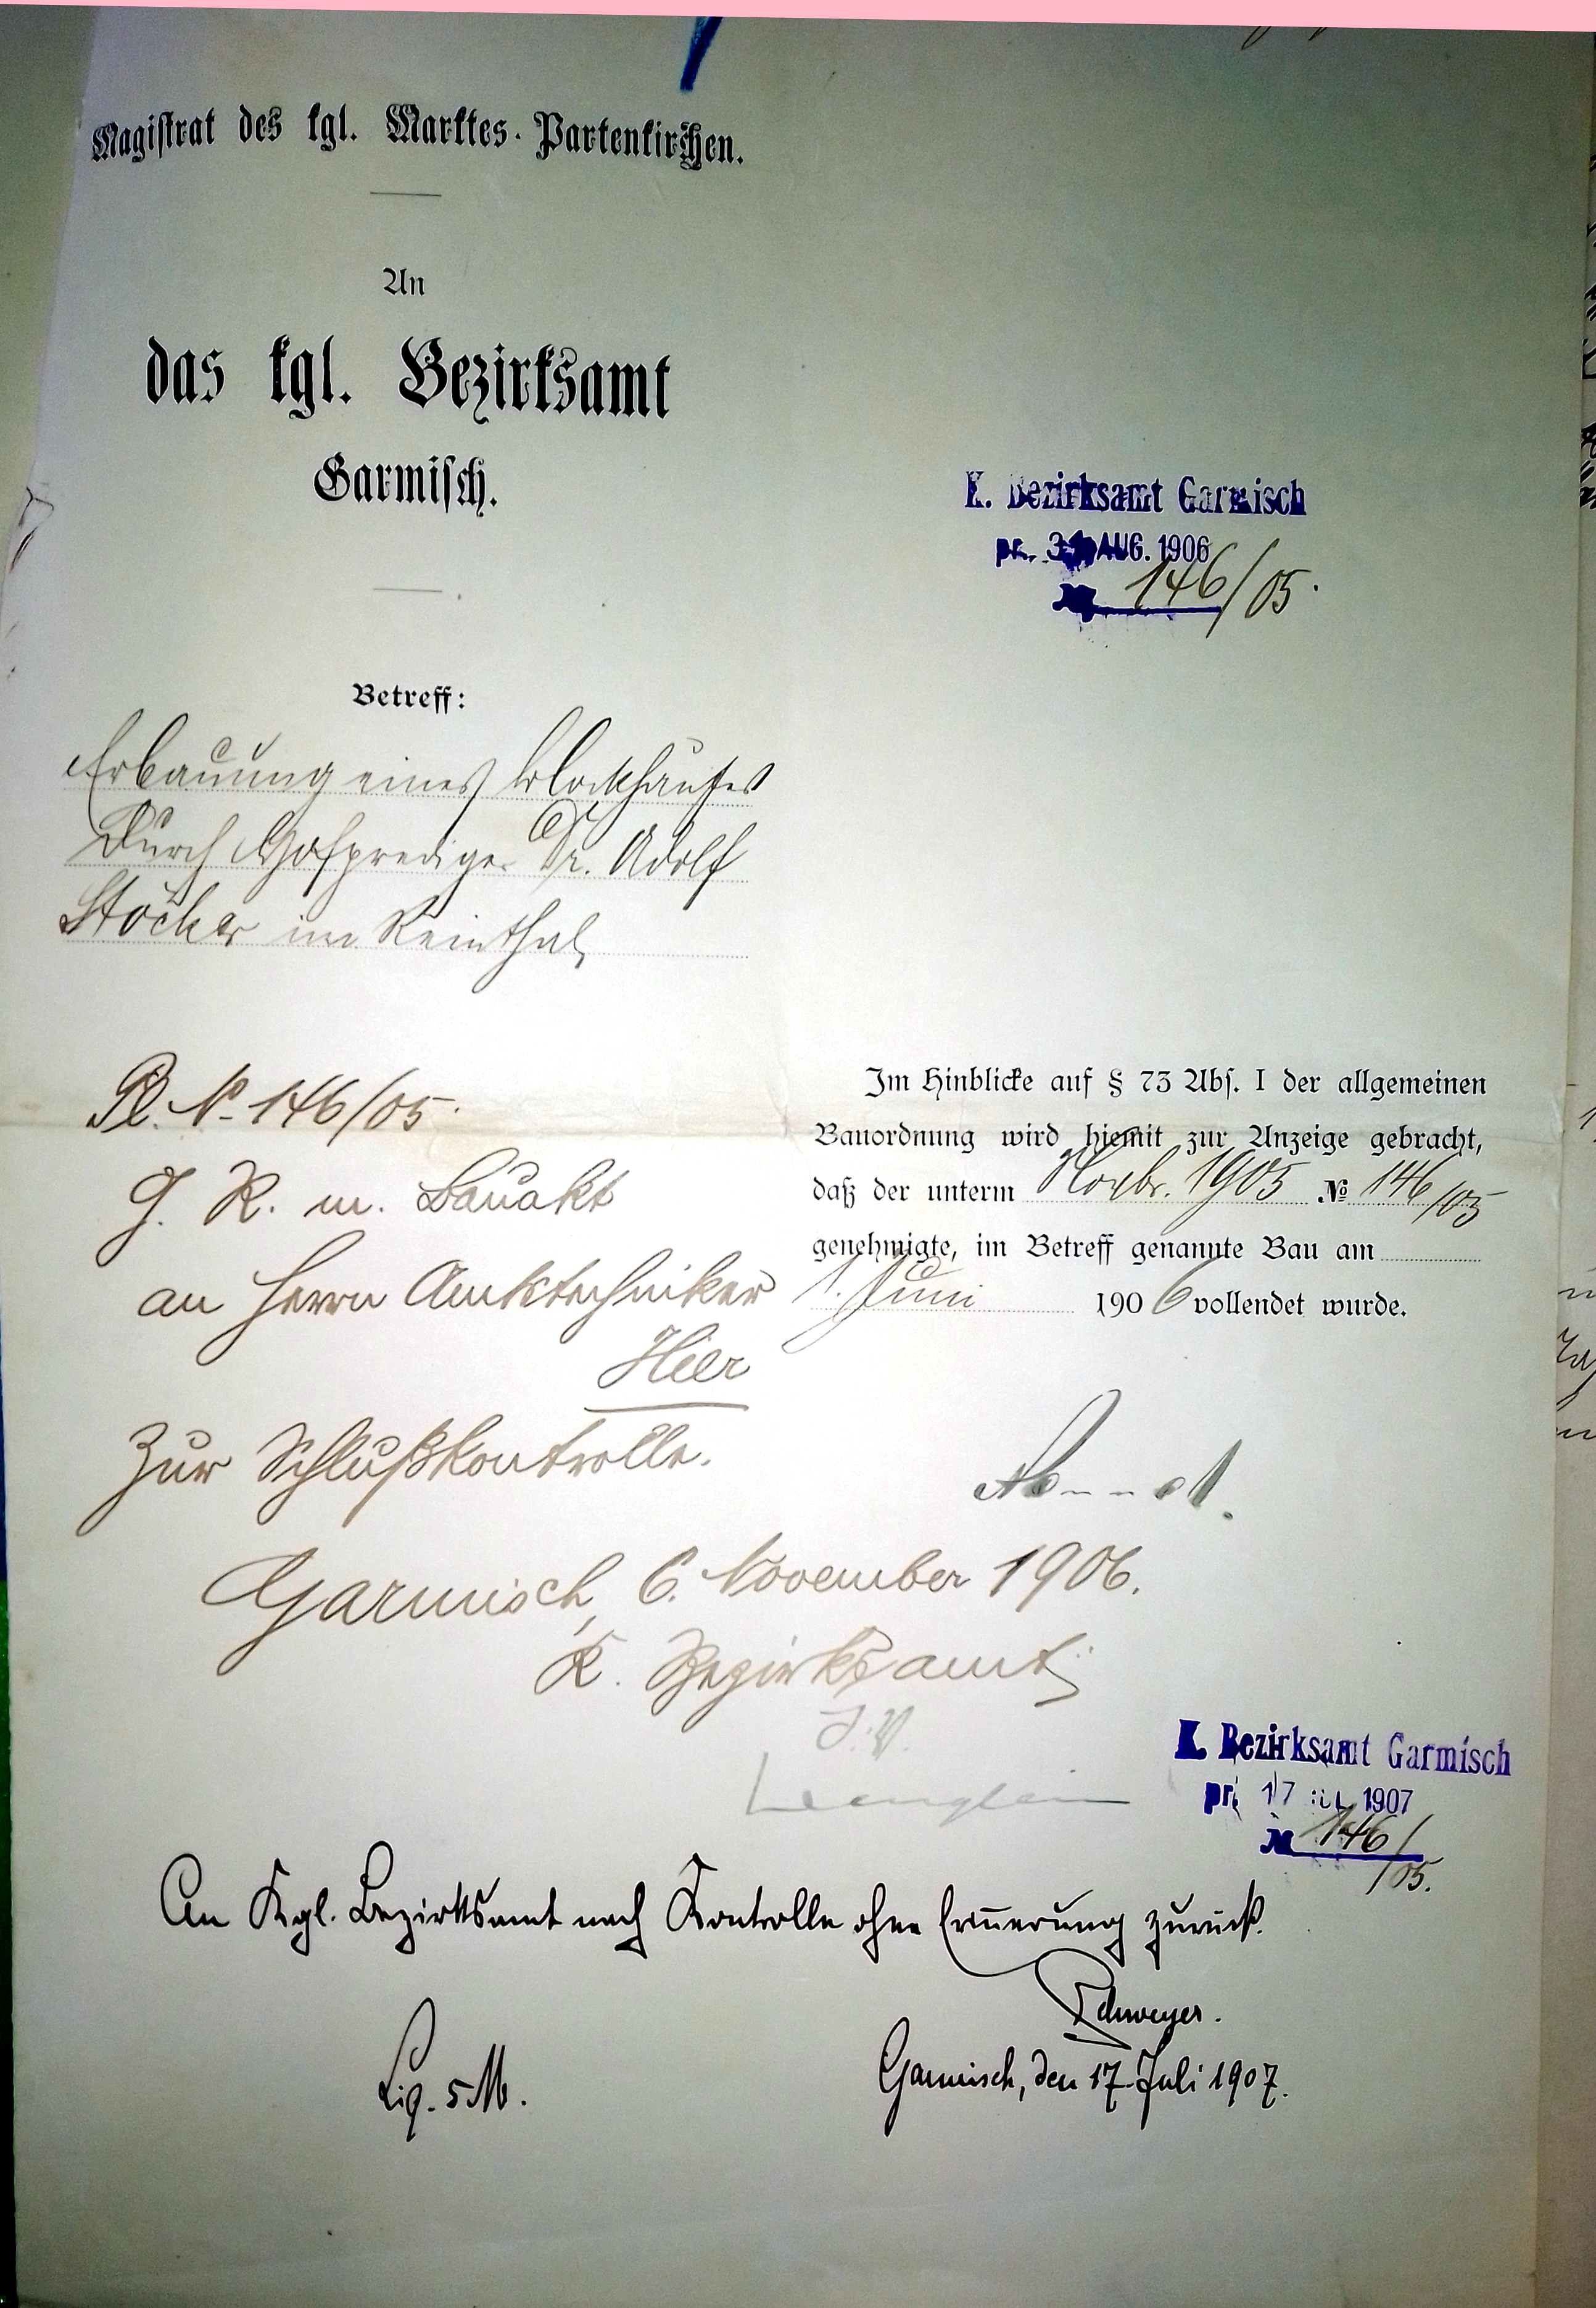 Magistrat des kgl. Marktes Partenkirchen.
An
das kgl. Bezirksamt
Garmisch.
K. Bezirksamt Garmisch
pr. AUG. 1906
№ 146/05.
Betreff:
Erbauung eines Blockhauses
durch Hofprediger Dr. Adolf
Stöcker im Reinthal
Pl. N. 146/05.
G. R. m. Bauakt
an Herrn Amtstechniker
Hier
zur Schlußkontrolle.
Im Hinblicke auf § 73 Abs. I der allgemeinen
Bauordnung wird hiemit zur Anzeige gebracht,
daß der unterm Novbr. 1905 № 146/05
genehmigte, im Betreff genannte Bau am
1. Juni 1906 vollendet wurde.
Garmisch, 6. November 1906.
K. Bezirksamt
I. V.
K. Bezirksamt Garmisch
pr. 17 JUL 1907
№ 146/05.
An Kgl. Bezirksamt nach Kontrolle ohne Erinnerung zurück.
Schweyer.
Garmisch, den 17. Juli 1907.
Liq. 5 M.